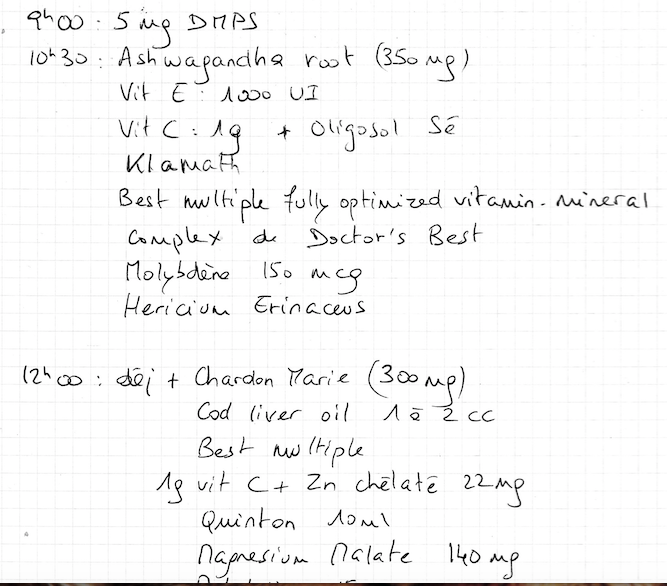 9h00 : 5 mg DMPS
10h30 : Ashwagandha root (350 mg)
Vit E : 1000 UI
Vit C : 1g + Oligosol Sé
Klamath
Best multiple fully optimized vitamin-mineral
complex de Doctor's Best
Molybdène 150 mcg
Hericium Erinaceus
12h00 : déj + Chardon Marie (300 mg)
Cod liver oil 1 à 2 cc
Best multiple
1g vit C + Zn chélaté 22 mg
Quinton 10ml
Magnesium Malate 140 mg